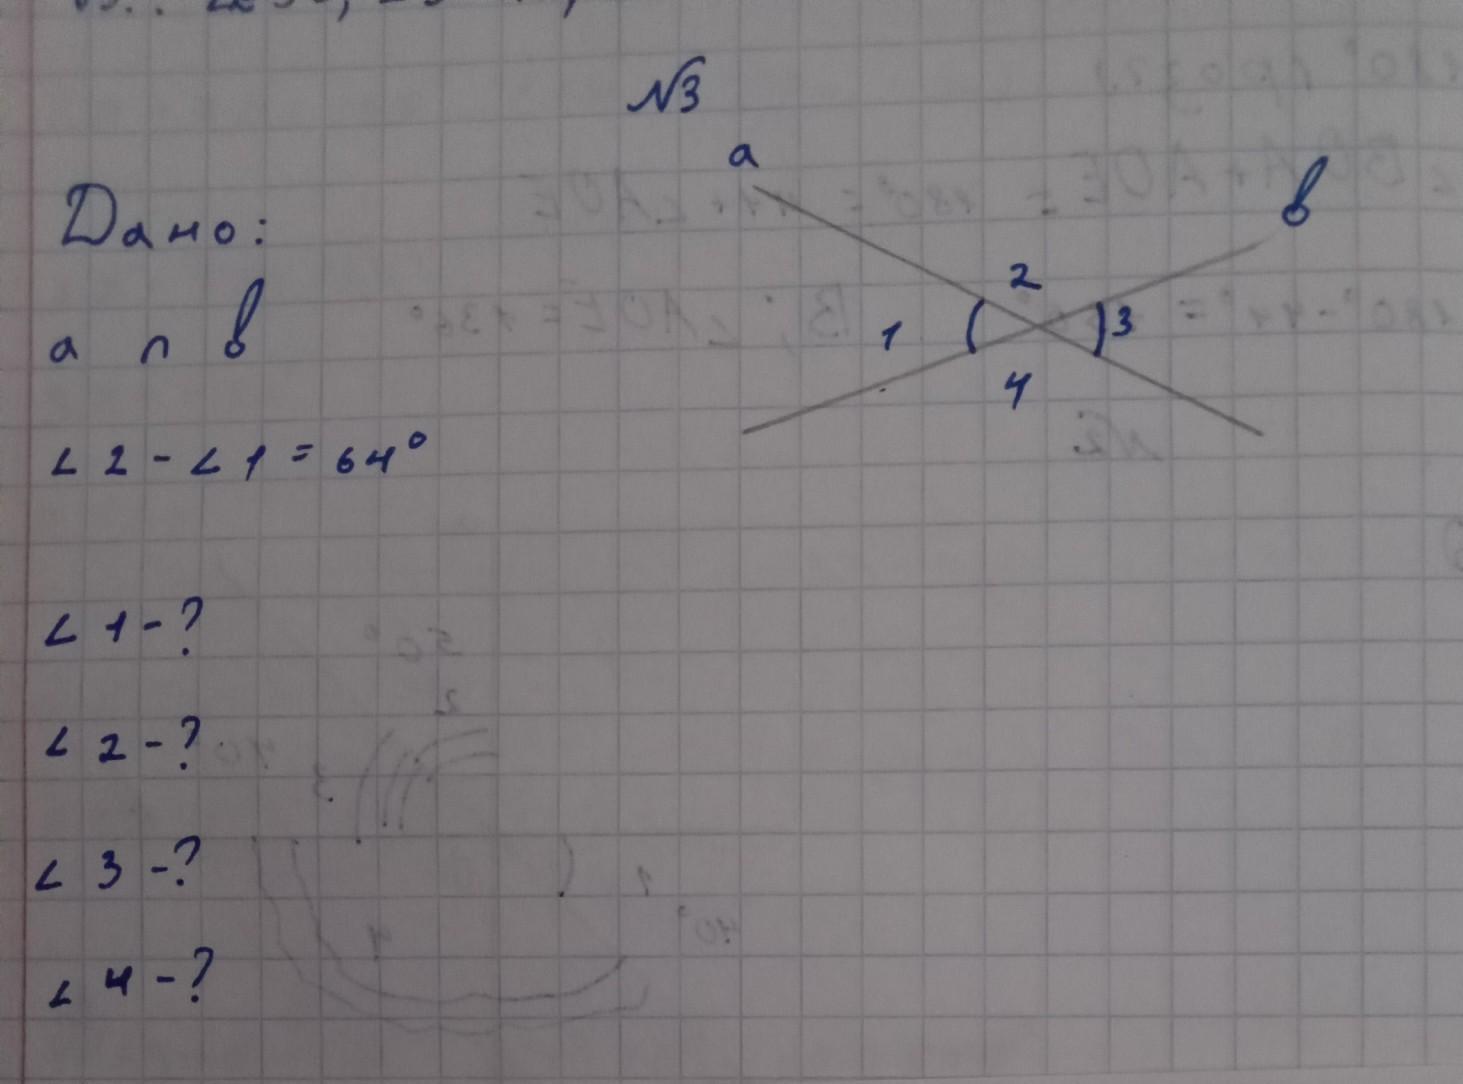 №3
Дано:
a ∩ b
∠2 - ∠1 = 64°
∠1 - ?
∠2 - ?
∠3 - ?
∠4 - ?
a
b
2
1
3
4